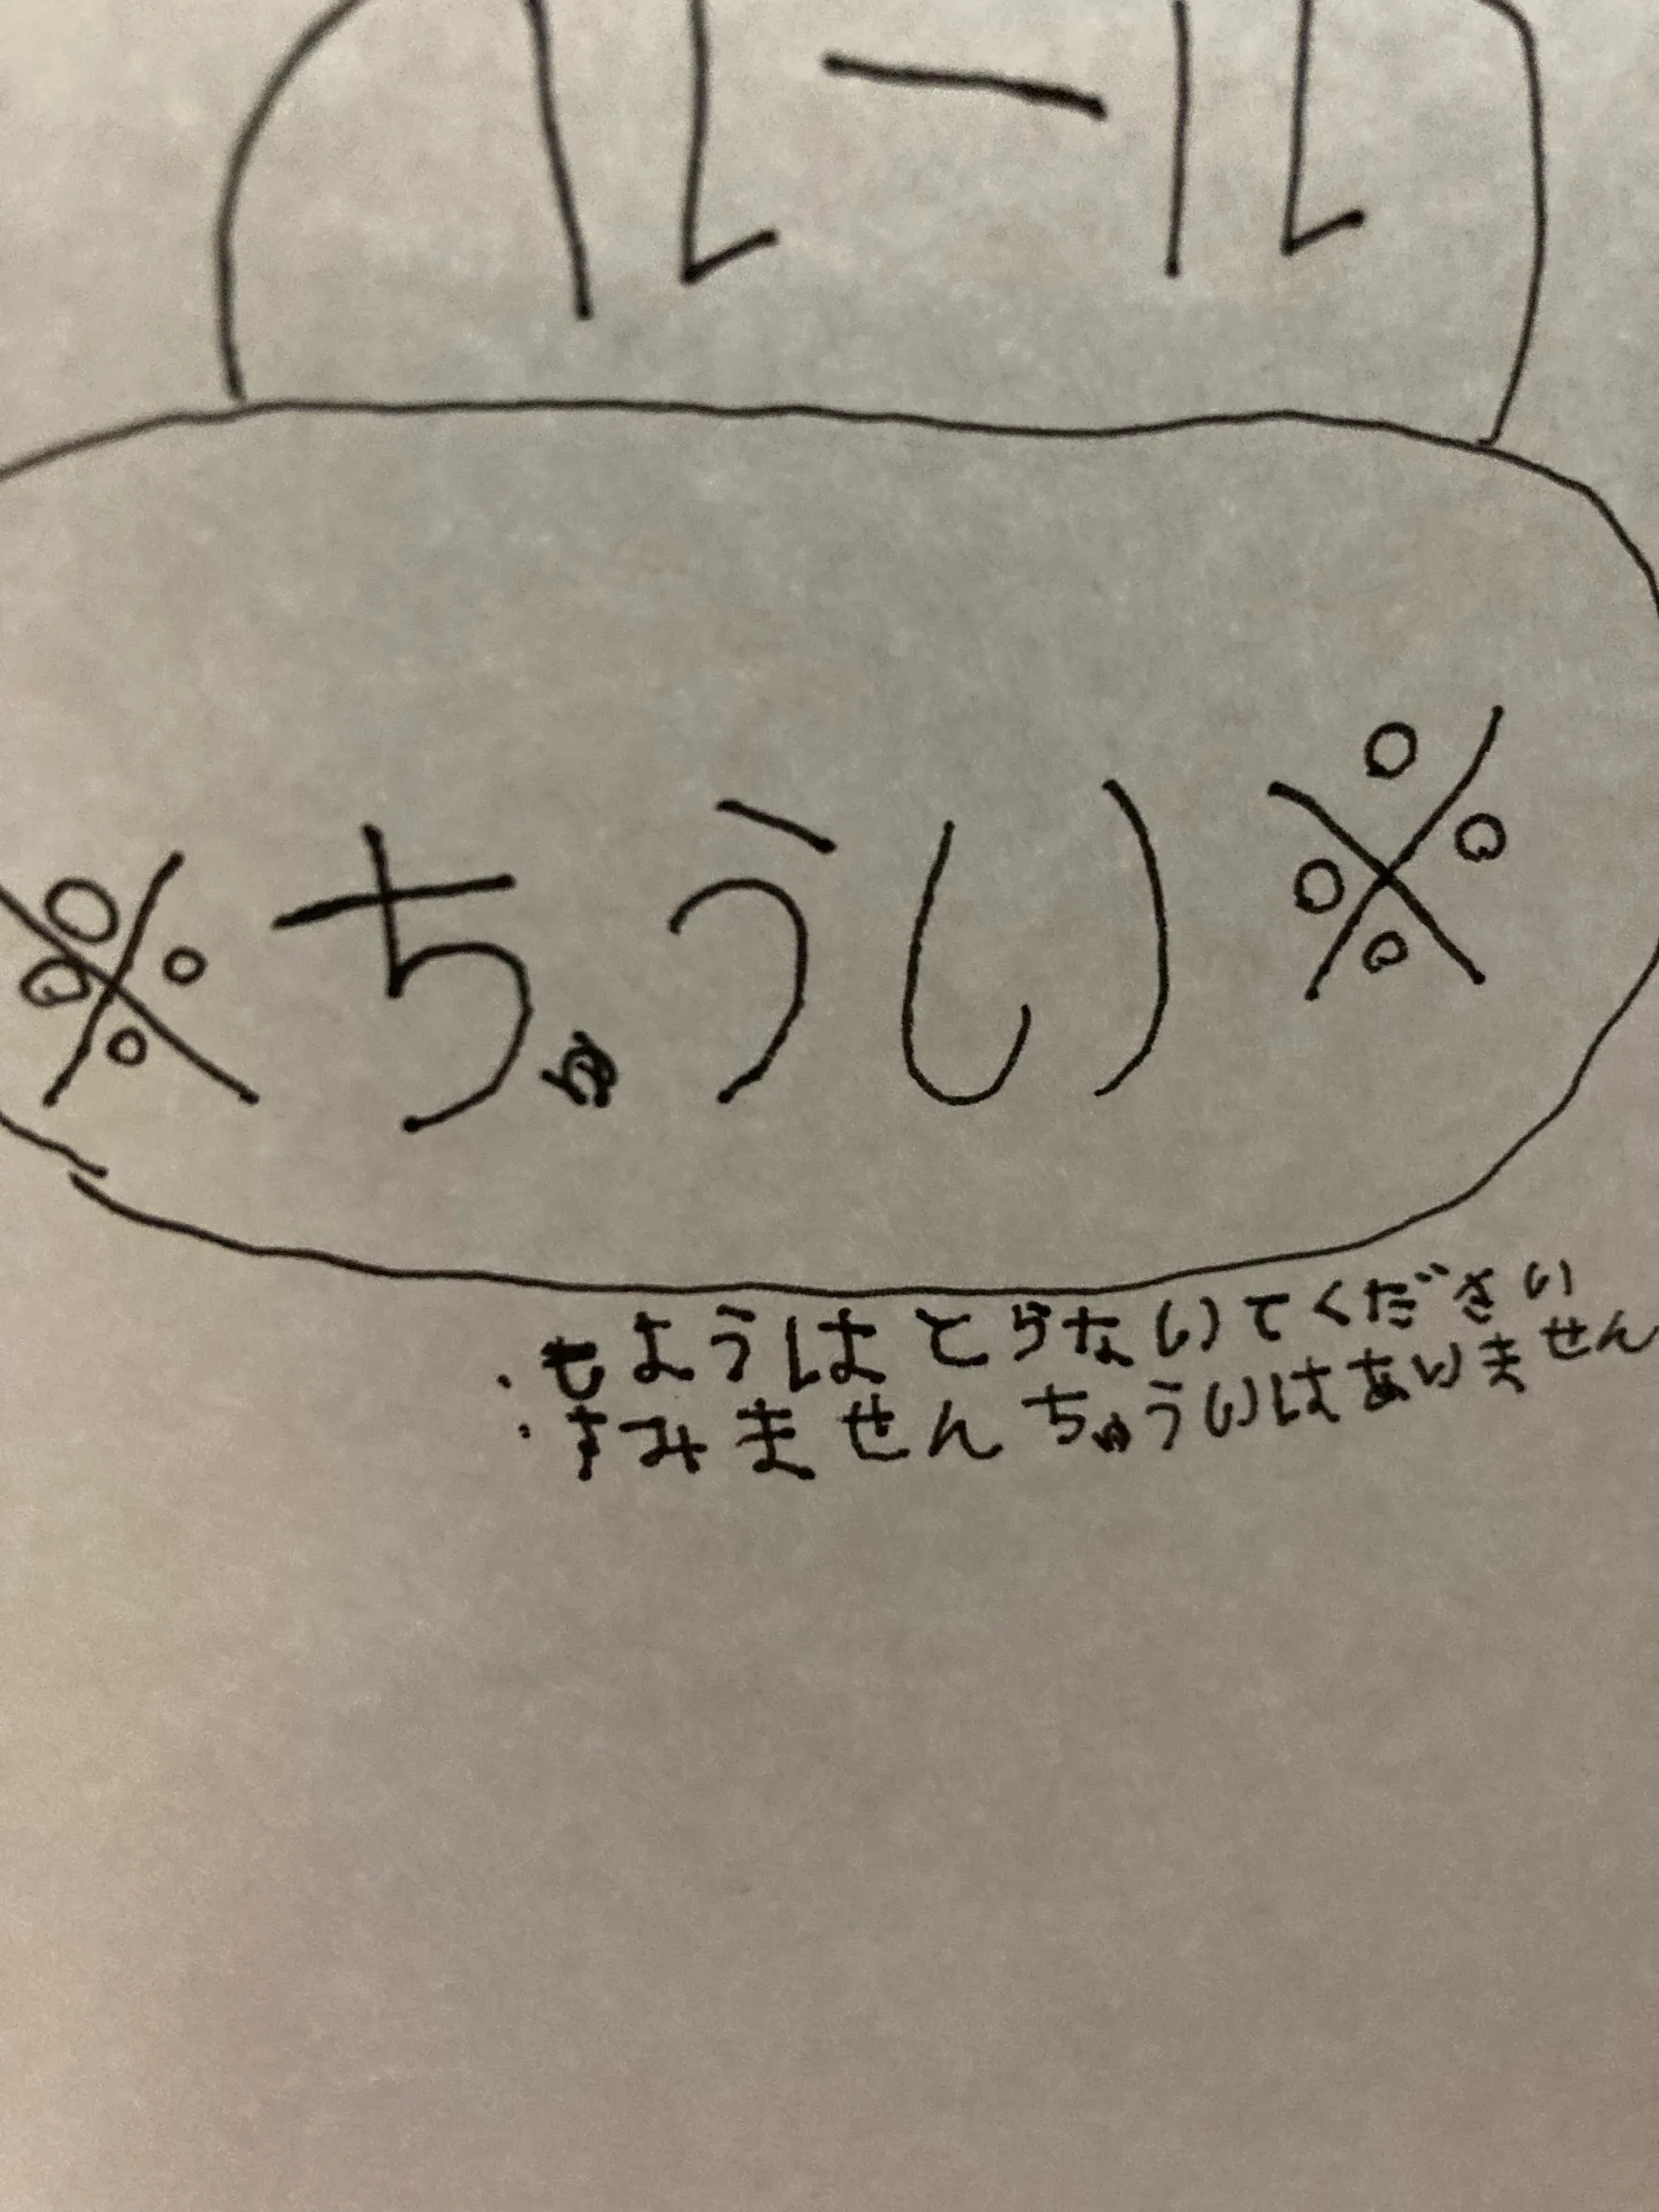 ルール
※ちゅうい※
・もようはとらないでください
・すみませんちゅういはありません